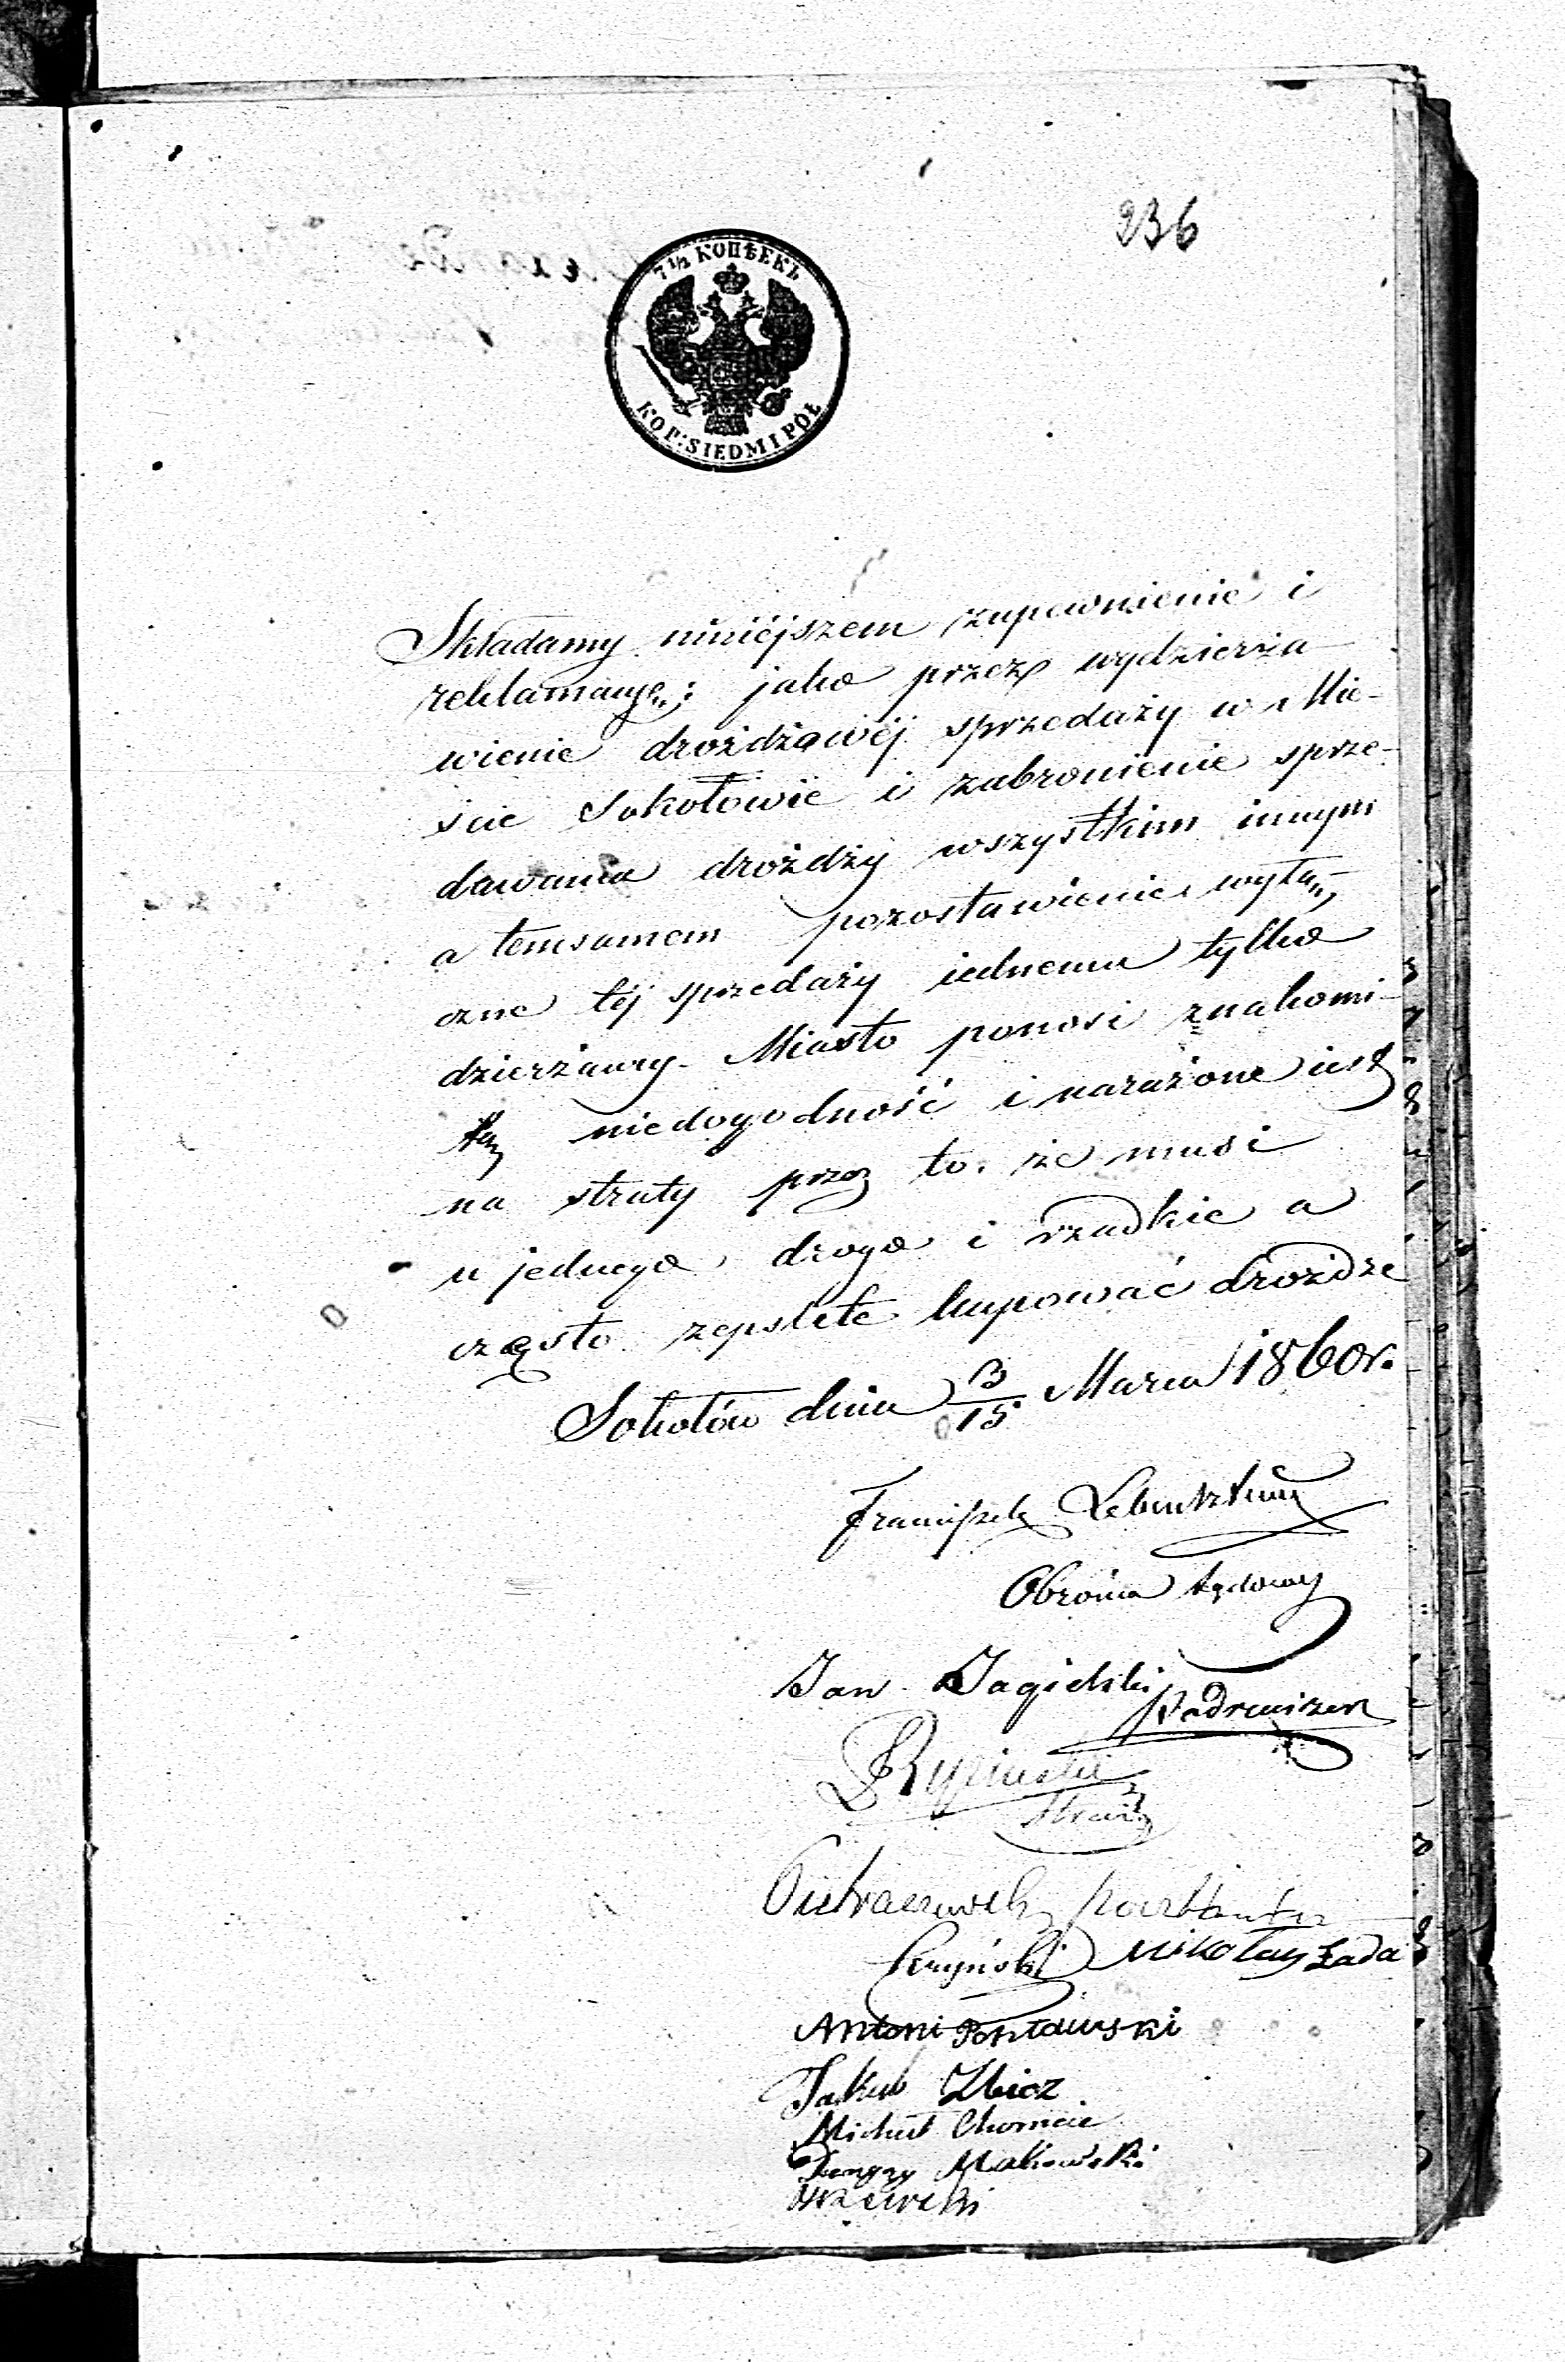 236
7 1/2 КОПѢЕКЪ
KOP: SIEDM I PÓŁ
Składamy niniéjszem zapewnienie i
reklamacyę; jako przez wydzierża-
wienie drożdżowéj sprzedaży w Mie-
ście Sokołowie i zabronienie sprze-
dawania drożdży wszystkim innym
a temsamem pozostawienie wyłą-
czne téj sprzedaży iednemu tylko
dzierżawcy. Miasto ponosi znakomi-
tą niedogodność i narażone iest
na straty przez to, że musi
u jednego, drogo i rzadkie a
często zepsute kupować drożdże
Sokołów dnia 3/15 Marca 1860 r.
Franciszek
Obrońca Sądowy
Jan Jagielski
Rypiński
Mikołay Żada
Antoni
Jakub Zbicz
Michał
Makowski